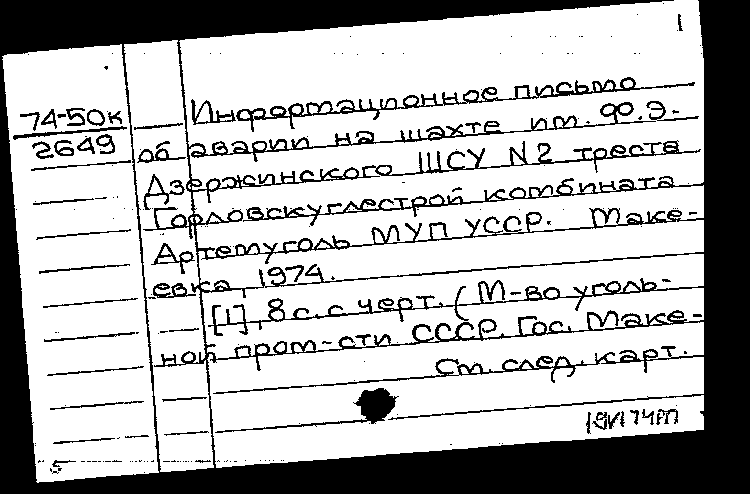 1
74-50к
2649
Информационное письмо
об аварии на шахте им. Ф.Э.
Дзержинского ШСУ N2 треста
Горловскуглестрой комбината
Артемуголь МУП УССР. Маке-
евка, 1974.
[1], 8 с. с черт. (М-во уголь-
ной пром-сти СССР. Гос. Маке-
См. след. карт.
5